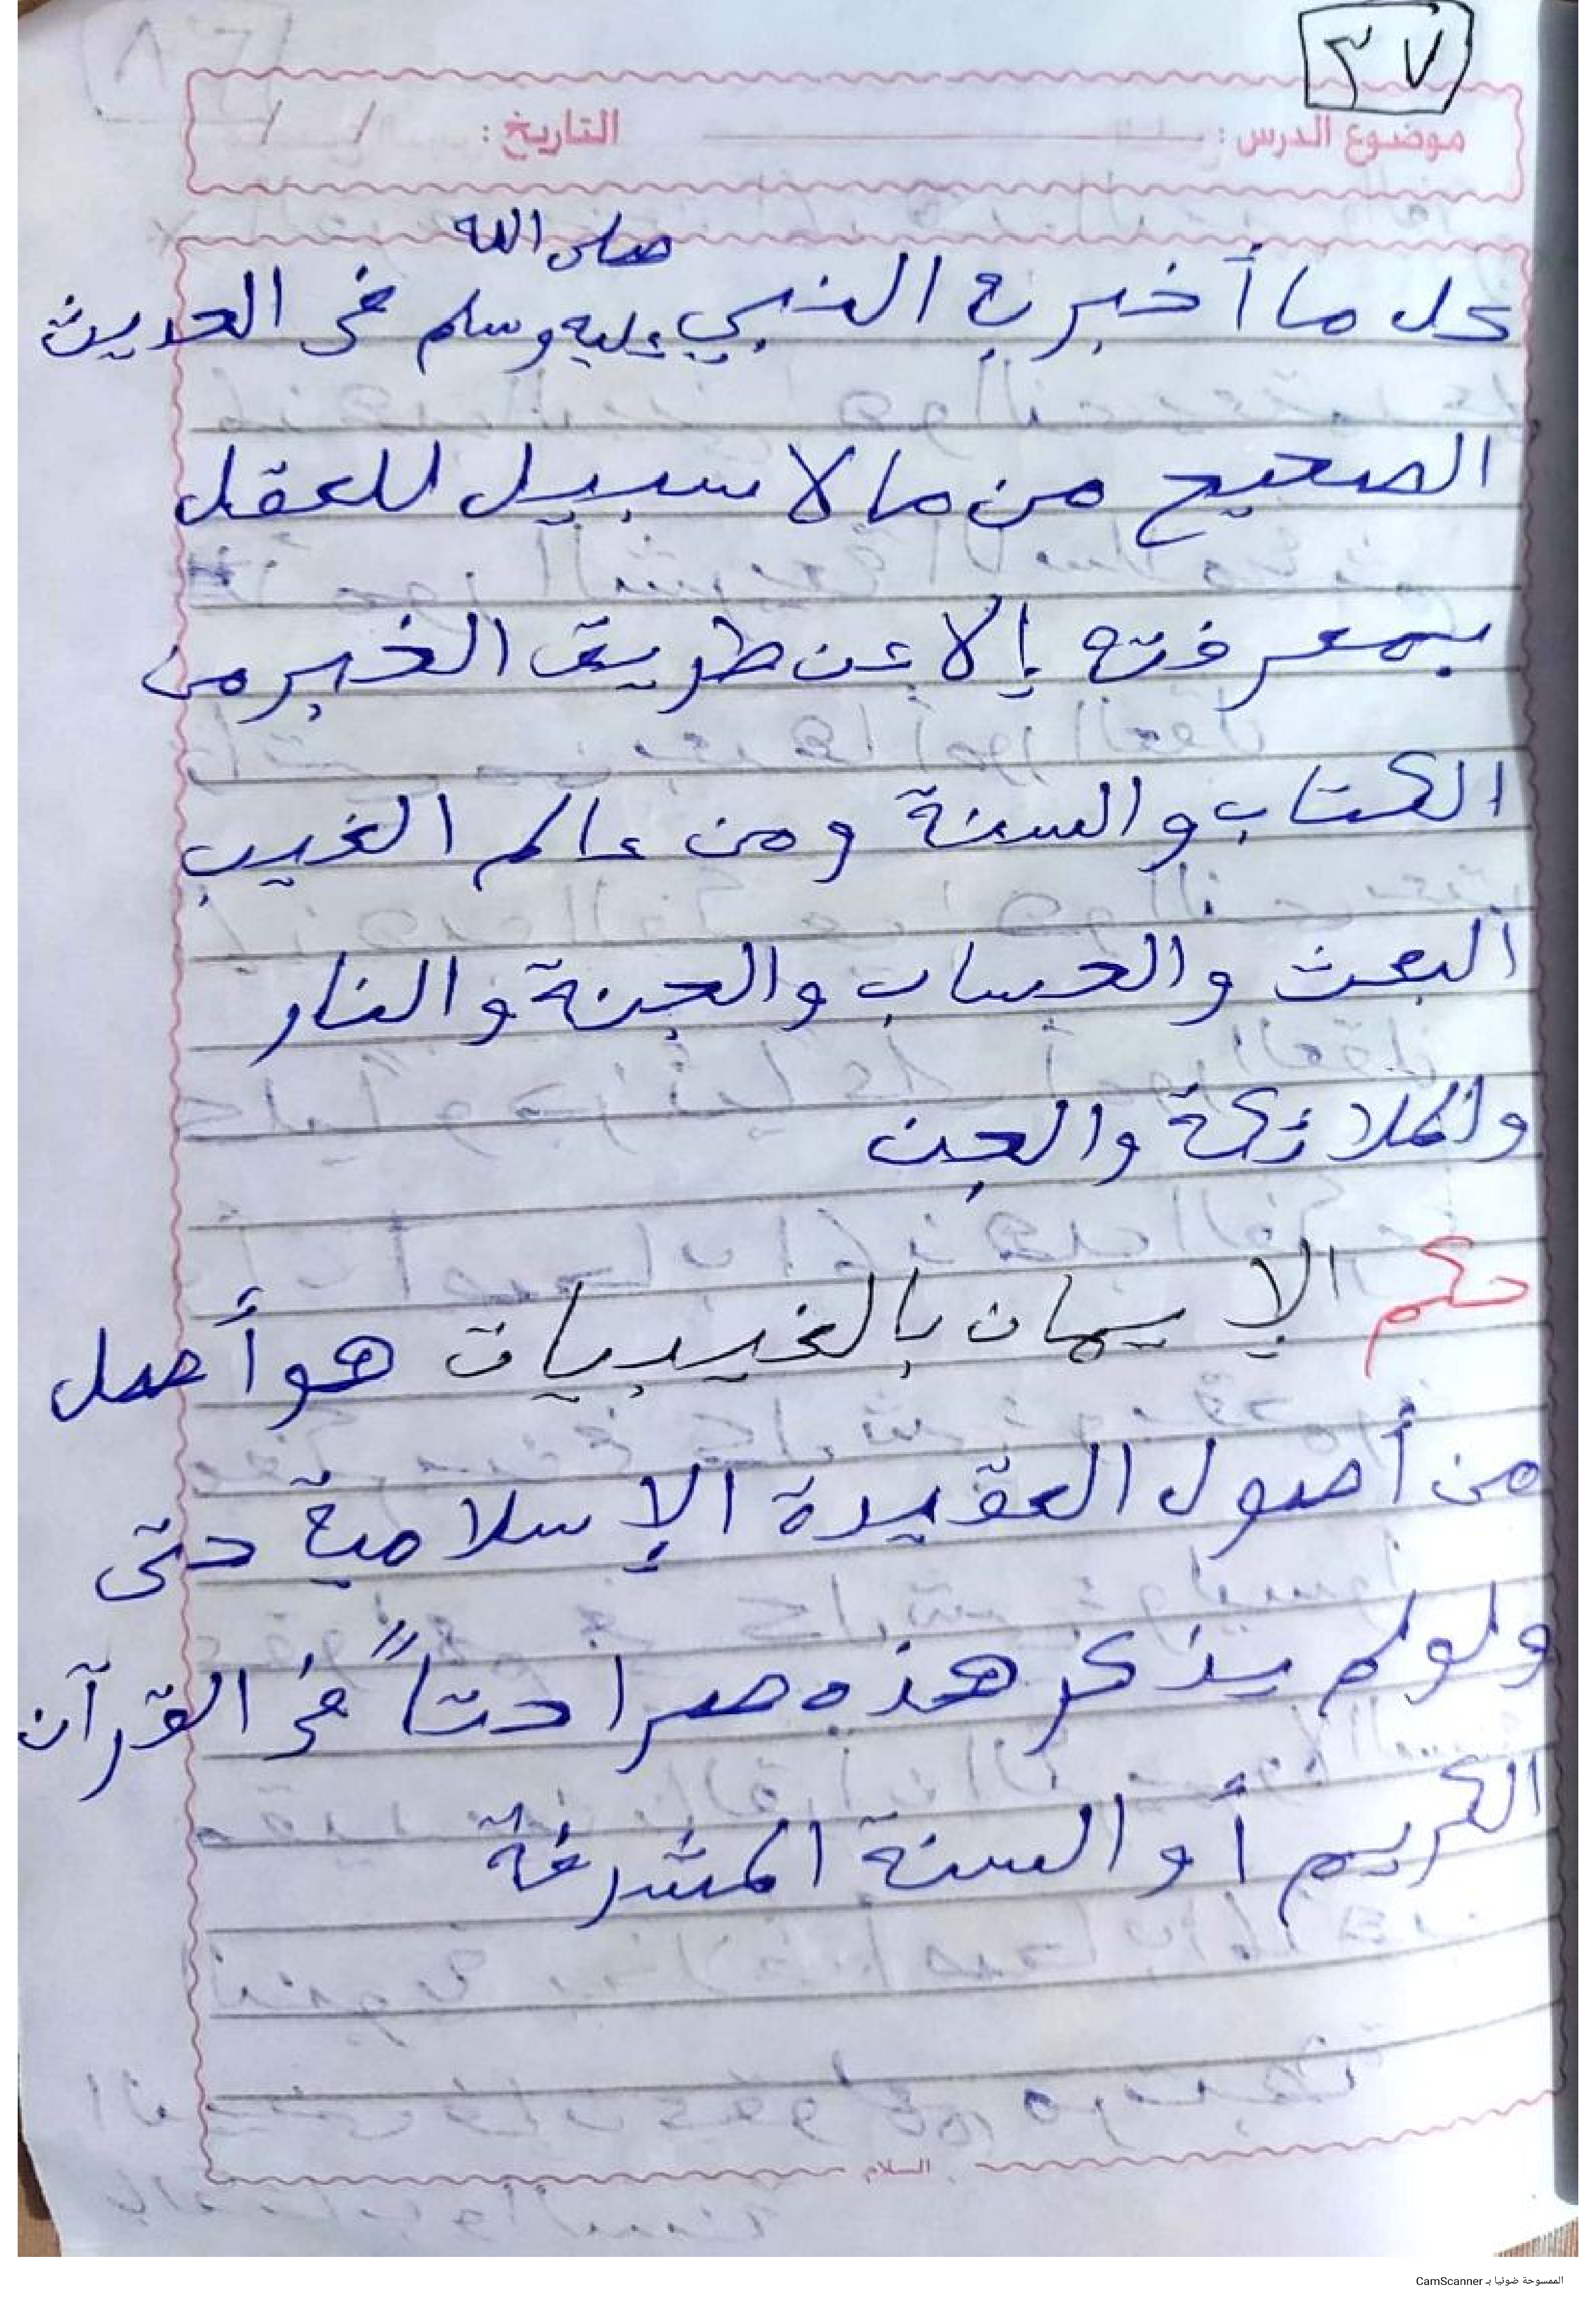 ٣٧
موضوع الدرس : التاريخ : / /
كل ما أخبر به النبي صلى الله عليه وسلم في الحديث
الصحيح من ما لا سبيل للعقل
بمعرفته إلا عن طريق الخبر من
الكتاب والسنة ومن عالم الغيب
البعث والحساب والجنة والنار
والملائكة والجن
حكم الإيمان بالغيبيات هو أصل
من أصول العقيدة الإسلامية حتى
ولو لم يذكر هذه صراحتاً في القرآن
الكريم أو السنة المشرفة
السلام
الممسوحة ضوئيا بـ CamScanner